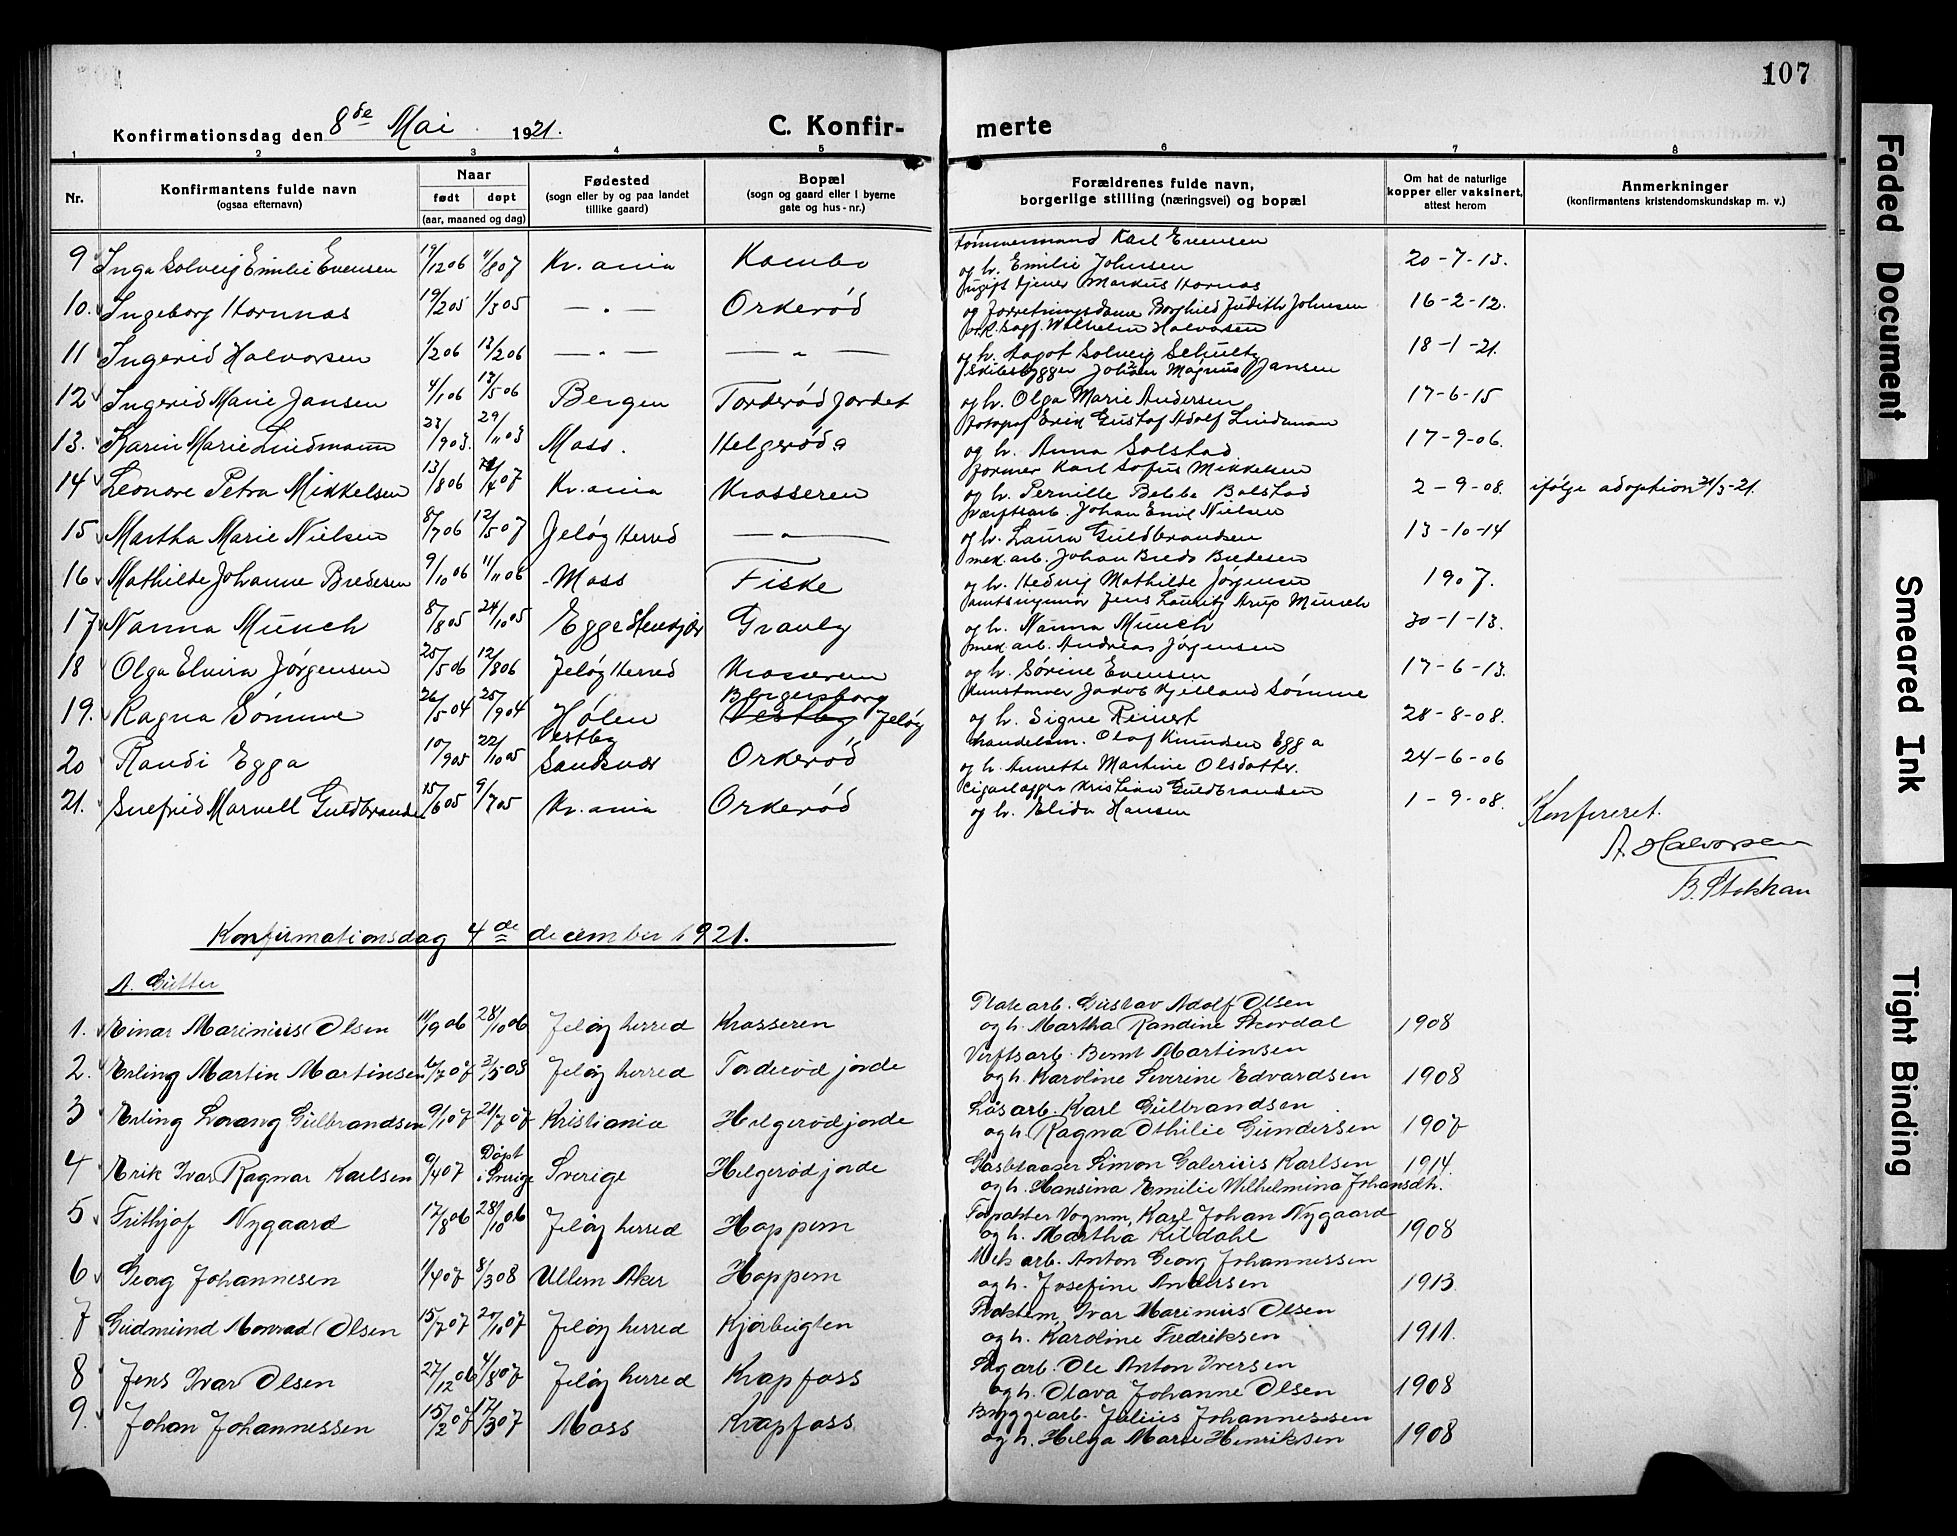 107
Konfirmationsdag den 8de Mai 1921.
C. Konfir-merte
1 2 3 4 5 6 7 8
Nr.
Konfirmantens fulde navn
(ogsaa efternavn)
Naar
født døpt
(aar, maaned og dag)
Fødested
(sogn eller by og paa landet
tillike gaard)
Bopæl
(sogn og gaard eller i byerne
gate og hus-nr.)
Forældrenes fulde navn,
borgerlige stilling (næringsvei) og bopæl
Om hat de naturlige
kopper eller vaksinert,
attest herom
Anmerkninger
(konfirmantens kristendomskundskap m. v.)
tømmermand Karl Evensen
9 Inga Solveig Emilie Evensen 19/12 06 11/8 07 Kr.ania Kambo og h. Emilie Johnsen 20-7-13.
ugift tjener Markus Hornæs
10. Ingeborg Hornnæs 19/2 05 1/3 05 — „ — Orkerød og Forretningsdame Borghild Judith Johnsen 16-2-12.
Wilhelm Halvorsen
11 Ingerid Halvorsen 1/2 06 13/2 06 — „ — — „ — og h. Aagot Solveig Schulty 18-1-21.
Skibsbygger Johan Magnus Jansen
12 Ingerid Marie Jansen 4/1 06 17/5 06 Bergen Torderød Jordet og h. Olga Marie Andersen 17-6-15
Fotograf Erik Gustaf Adolf Lindmann
13. Karin Marie Lindmann 23/9 03. 29/11 03 Moss. Helgerød og h. Anna Solstad 17-9-06.
former Karl Sofus Mikkelsen
14 Leonore Petra Mikkelsen 13/8 06 /4 07 Kr.ania Krosseren og h. Pernille Bolstad 2-9-08. ifølge adoption 21/3-21.
Værftsarb. Johan Emil Nielsen
15 Martha Marie Nielsen 8/7 06 12/5 07 Jeløy Herred — „ — og h. Laura Guldbrandsen 13-10-14
mek. arb. Johan Bredo Bredesen
16 Mathilde Johanne Bredesen 9/10 06 11/11 06 Moss Fiske og h. Hedvig Mathilde Jørgensen 1907.
amtsingeniør Jens Lauritz Arup Munch
17 Nanna Munch 8/8 05 24/10 05 Egge Stenkjær Grønly og h. Nanna Munch 30-1-13.
mek. arb. Andreas Jørgensen
18 Olga Elvira Jørgensen 25/5 06 12/8 06 Jeløy Herred Krosseren og h. Sørine Evensen 17-6-13.
Kunstmaler Jakob Kjelland Sømme
19. Ragna Sømme 26/5 04 25/9 04 Hølen Vestby Bergersborg Vestby Jeløy og h. Signe Reinert 28-8-08.
handelsm. Olaf Knudsen Egga
20 Randi Egga 10/9 05 22/10 05 Sandsvær Orkerød og h. Annette Martine Olsdatter. 24-6-06
Cigarlagger Kristian Guldbrandsen
21. Snefrid Marvell Guldbrandsen 15/6 05 9/7 05 Kr.ania Orkerød og h. Elida Hansen 1-9-08.
Konfereret.
A. Halvorsen
B. Stokkan
Konfirmationsdag 4de december 1921.
A. Gutter
Platearb. Gustav Adolf Olsen
1. Einar Marinius Olsen 11/9 06 28/10 06 Jeløy herred Krosseren og h. Martha Randine Skordal 1908
Verftsarb. Bernt Martinsen
2. Erling Martin Martinsen 6/7 07 3/5 08 Jeløy herred Torderød jorde og h. Karoline Severine Edvardsen 1908
Løsarb. Karl Gulbrandsen
3 Erling Lorang Gulbrandsen 9/1 07 21/7 07 Kristiania Helgerødjorde og h. Ragna Othilie Gundersen 1907
4 Erik Ivar Ragnar Karlsen 9/4 07 Døpt i Sverige Sverige Helgerødjorde Glasblaaser Simon Galerius Karlsen 1914.
og h. Hansina Emilie Wilhelmina Johansdt.
5 Frithjof Nygaard 17/8 06 28/10 06 Jeløy herred Hoppern Forpakter Vognm. Karl Johan Nygaard
og h. Martha Kildahl 1908
Mek arb. Anton Georg Johannessen
6 Georg Johannesen 1/4 07 8/3 08 Ullern Aker Hoppern og h. Josefine Andersen 1913
Ivar Marinius Olsen
7 Gudmund Konrad Olsen 15/7 07 20/10 07 Jeløy herred Kjørbugten og h. Karoline Fredriksen 1911.
Sagarb. Ole Anton Iversen
8 Jens Ivar Olsen 27/12 06 4/8 07 Jeløy herred Krapfoss og h. Olava Johanne Olsen 1908
Bryggearb. Julius Johannessen
9. Johan Johannessen 15/2 07 17/3 07 Moss Krapfoss og h. Helga Marie Henriksen 1908
Faded Document
Smeared Ink
Tight Binding